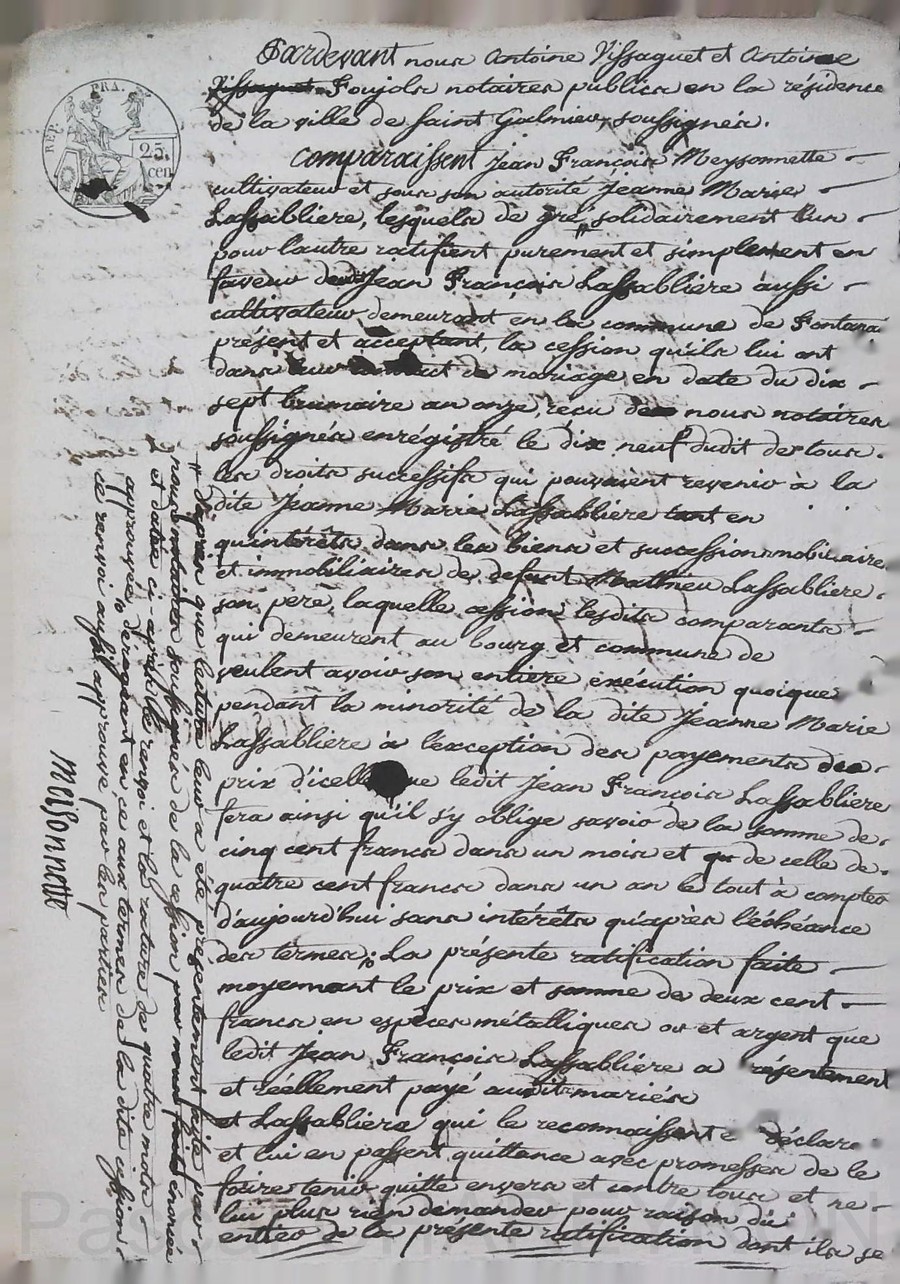 Pardevant nous Antoine Vissaguet et Antoine
Vissaguet Foujols notaires publics en la résidence
de la ville de Saint Galmier, soussignés.
REP. FRA.
25. cen
Comparaissent Jean François Meysonnette
cultivateur et sous son autorité Jeanne Marie
Lassabliere, lesquels de gré solidairement l'un
pour l'autre ratifient purement et simplement en
faveur de Jean François Lassabliere aussi
cultivateur demeurant en la commune de Fontanès
présent et acceptant, la cession qu'ils lui ont
dans leur contract de mariage en date du dix
sept brumaire an onze, reçu des nous notaires
soussignés enrégistré le dix neuf dudit de tous
les droits successifs qui pouvaient revenir à la
dite Jeanne Marie Lassabliere tant en
qu'intérêts dans les biens et succession mobiliaire
et immobiliaires de defunt Mathieu Lassabliere
son pere, laquelle cession lesdits comparants
qui demeurent au bourg et commune de
veulent avoir son entiere exécution quoique
pendant la minorité de la dite Jeanne Marie
Lassabliere à l'exception des payements des
prix d'icelle que ledit Jean François Lassabliere
fera ainsi qu'il s'y oblige savoir de la somme de
cinq cent francs dans un mois et de celle de
quatre cent francs dans un an le tout à compter
d'aujourd'hui sans intérêts qu'après l'échéance
des termes; La présente ratification faite
moyennant le prix et somme de deux cent
francs en espèces métalliques or et argent que
ledit Jean François Lassabliere a résentement
et réellement payé auxdits mariés
et Lassabliere qui le reconnaissent déclare
et lui en passent quittance avec promesses de le
faire tenir quitte envers et contre tous et ne
lui plus rien demander pour raison du
entier de la présente ratification dont ils se
" d'après que lecture leur a été présentement faite par
nous notaires soussignés de la cession par nous énoncée
et datée ci-après le renvoi et la rature de quatre mots
approuvés dérogeant en ce aux termes de la dite cession
ce renvoi aussi approuvé par les parties
meisonnette